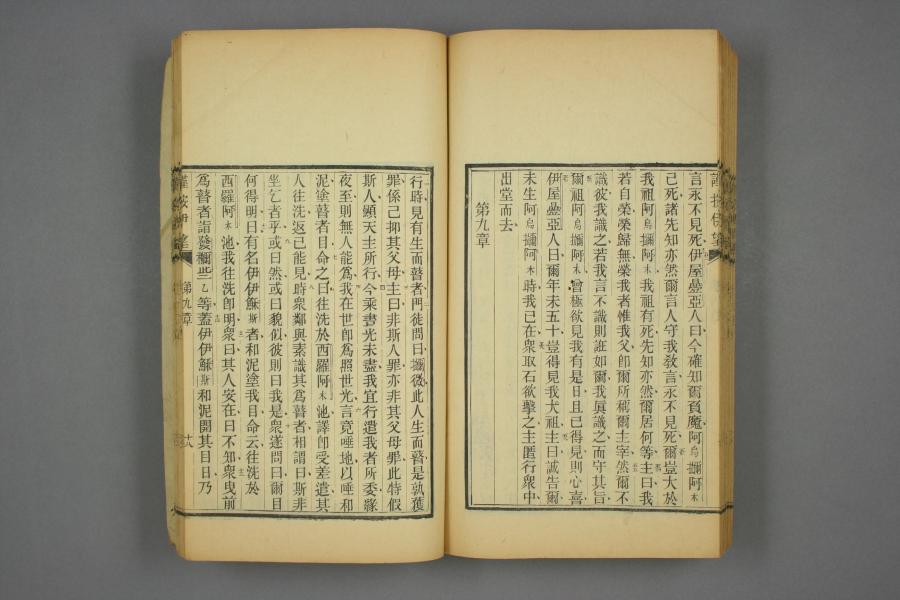 言永不見死伊屋㬎亞人曰今確知爾負魔阿烏㘓阿木
己死諸先知亦然爾言人守我敎言永不見死爾豈大於
我祖阿烏㘓阿木我祖有死先知亦然爾居何等主曰我
若自榮榮歸無榮我者惟我父卽爾所稱爾主宰然爾不
識彼我識之若我言不識則誑如爾我眞識之而守其旨
爾祖阿烏㘓阿木曾極欲見我有是日且已得見則心喜
伊屋㬎亞人曰爾年未五十豈得見我大祖主曰誠告爾
未生阿烏㘓阿木時我已在衆取石欲擊之主匿行衆中
出堂而去
第九章
行時見有生而瞽者門徒問曰㘓微此人生而瞽是孰獲
罪係己抑其父母主曰非斯人罪亦非其父母罪此特假
斯人顯天主所行今乘晝光未盡我宜行遣我者所委緣
夜至則無人能爲我在世卽爲照世光言竟唾地以唾和
泥塗瞽者目命之曰往洗於西羅阿木池譯卽受差遣其
人往洗返已能見時衆鄰與素識其爲瞽者相謂曰斯非
坐乞者乎或曰然或曰貌似彼則曰我是衆遂問曰爾目
何得明曰有名伊伊穌斯者和泥塗我目命云往洗於
西羅阿木池我往洗卽明衆曰其人安在曰不知衆曳前
爲瞽者詣發㘓些乙等蓋伊伊穌斯和泥開其目日乃
第九章